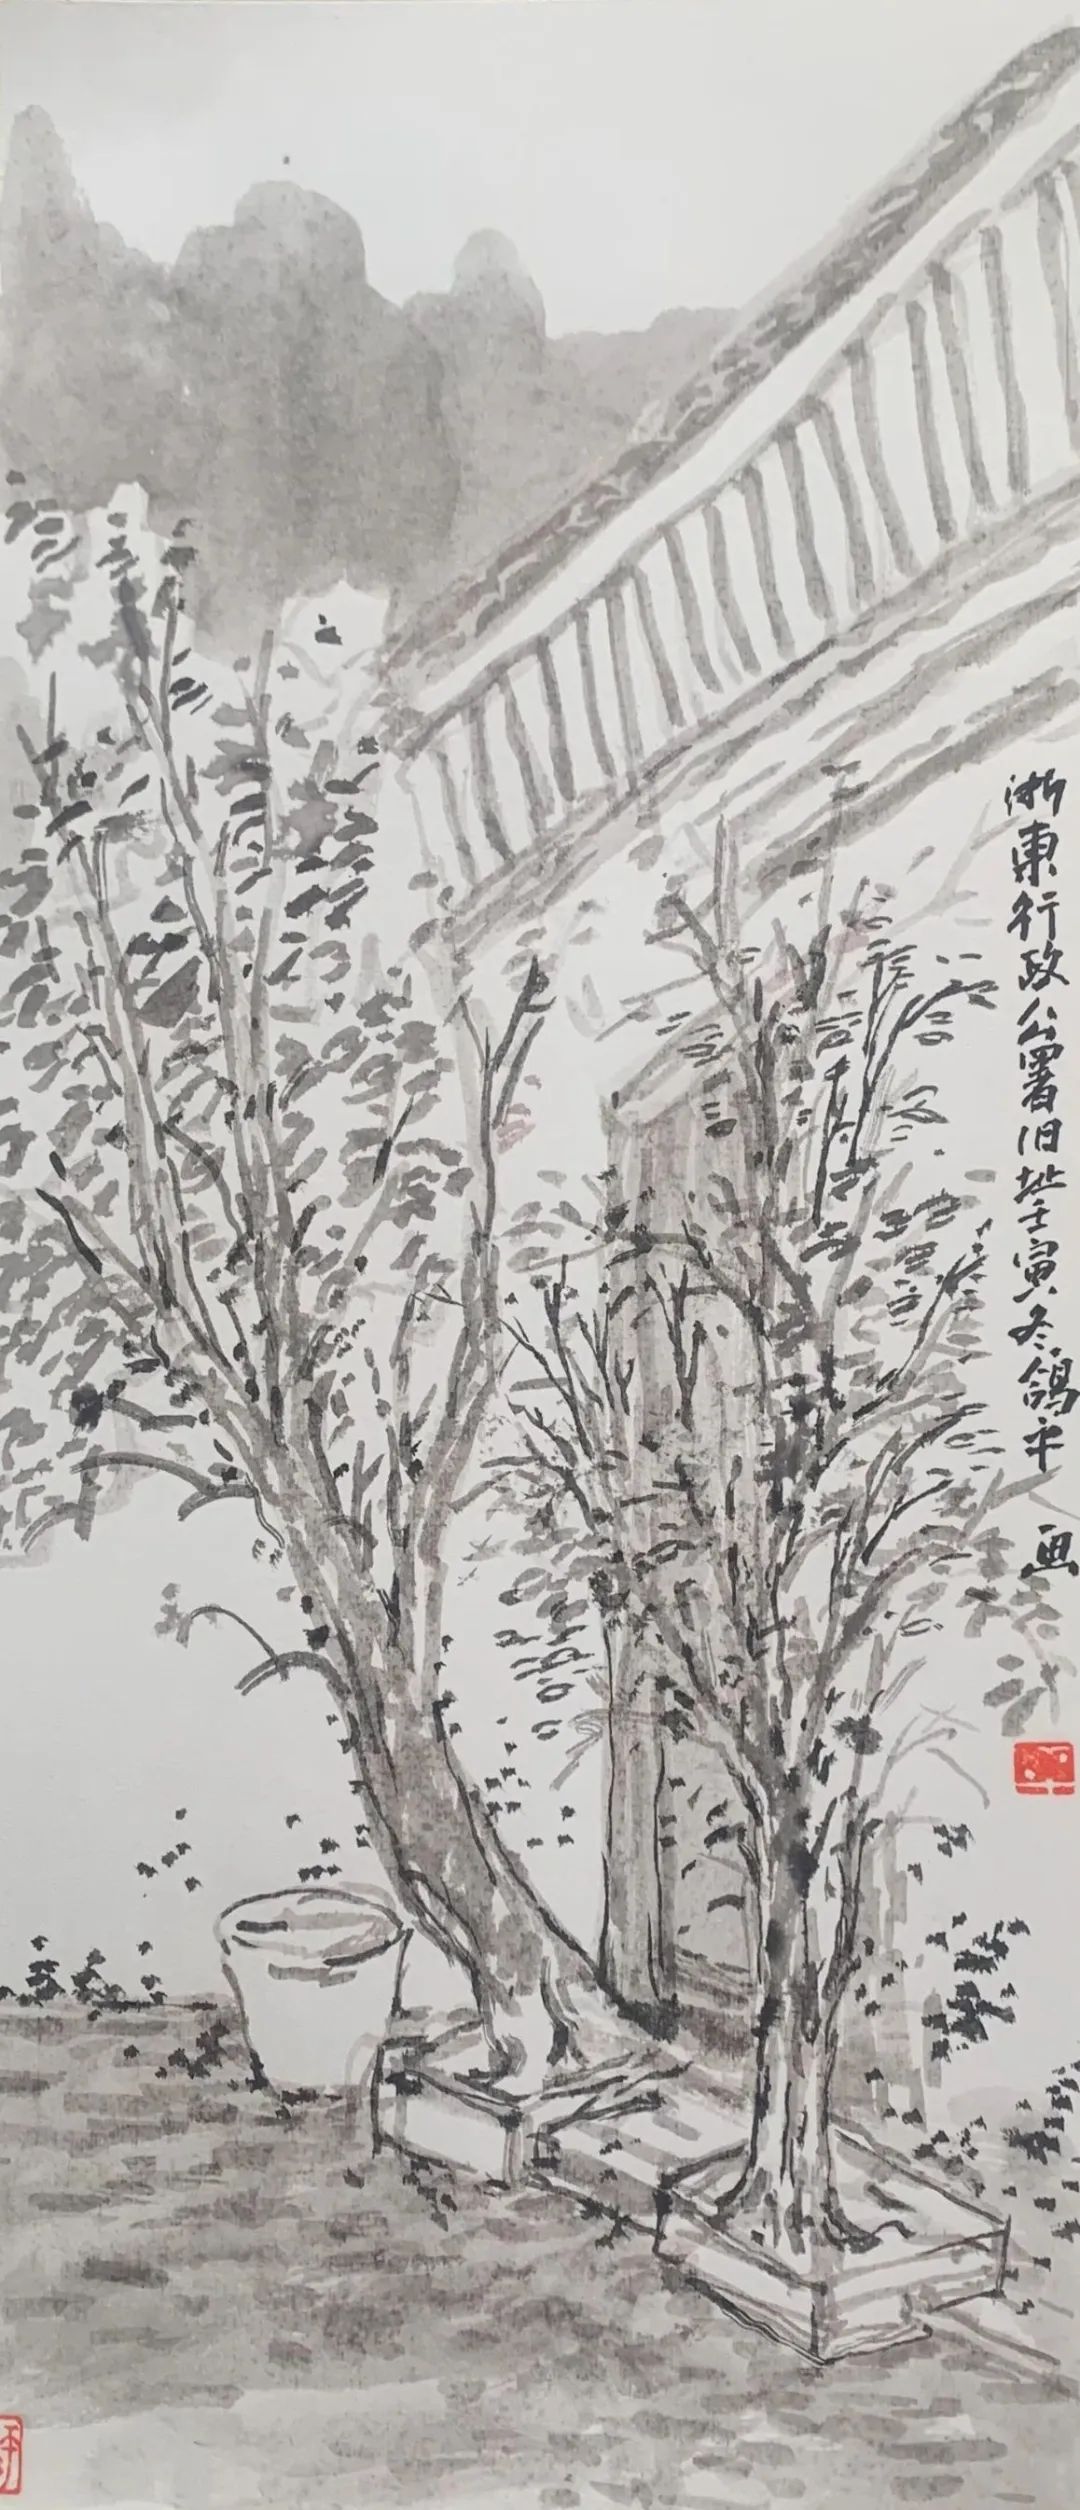 浙東行政公署旧址壬寅冬鴿平画